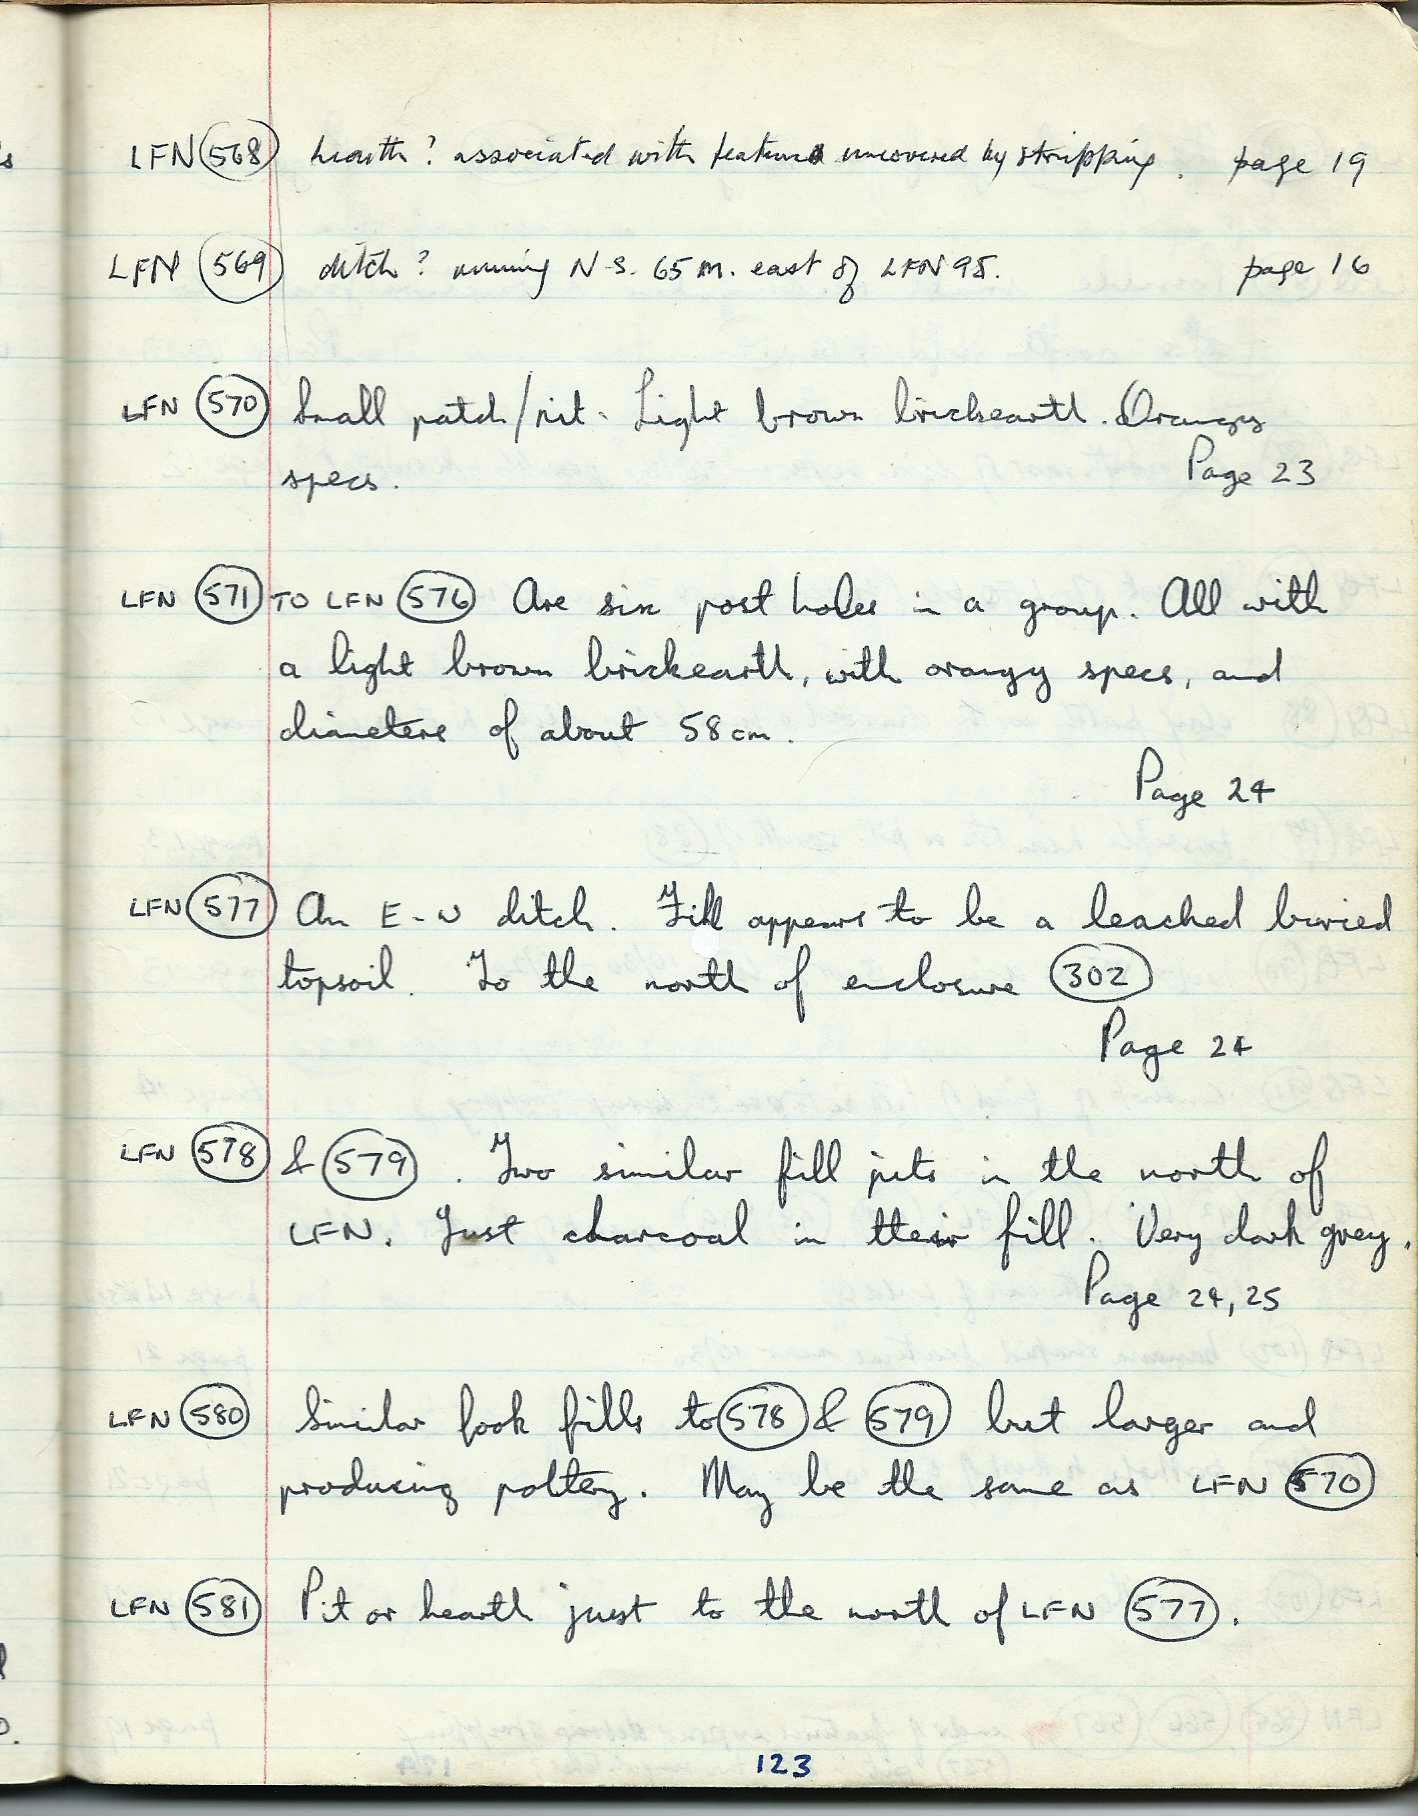 LFN 568 hearth? associated with features uncovered by stripping. page 19
LFN 569 ditch? running N-S. 65m. east of LFN 95. page 16
LFN 570 Small patch/pit. Light brown brickearth. Orangy
specs. Page 23
LFN 571 TO LFN 576 Are six post holes in a group. All with
a light brown brickearth, with orangy specs, and
diameters of about 58cm.
Page 24
LFN 577 An E-W ditch. Fill appears to be a leached buried
topsoil. To the north of enclosure 302
Page 24
LFN 578 & 579. Two similar fill pits in the north of
LFN. Just charcoal in their fill. Very dark grey.
Page 24, 25
LFN 580 Similar look fills to 578 & 579 but larger and
producing pottery. May be the same as LFN 570
LFN 581 Pit or hearth just to the north of LFN 577.
123